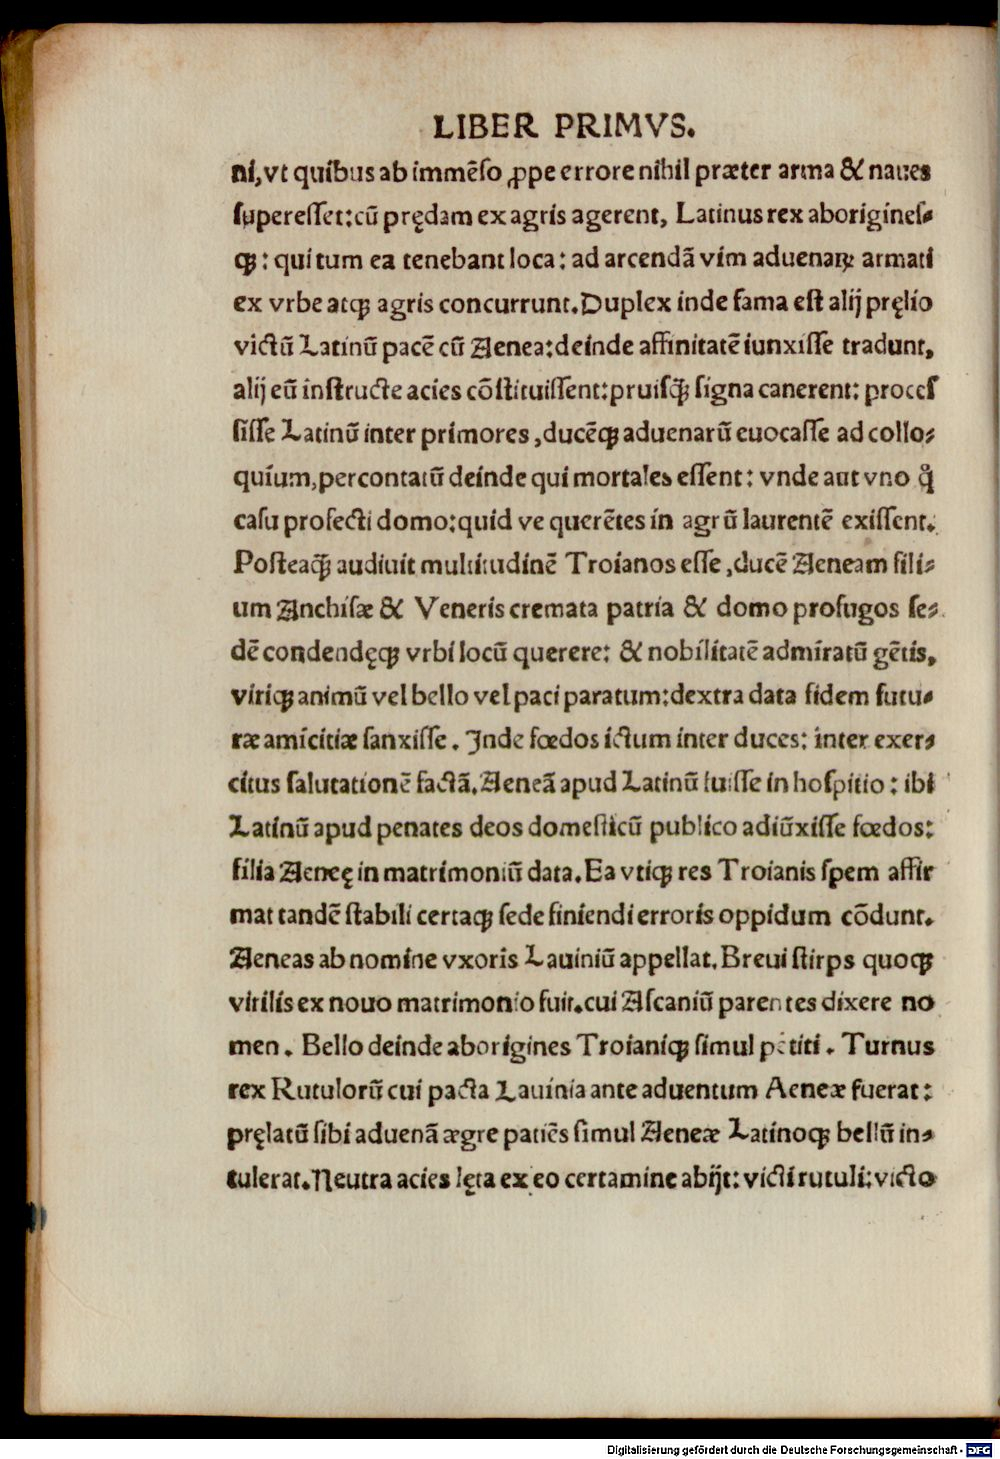 LIBER PRIMVS.
ni, vt quibus ab immēso ꝓpe errore nihil præter arma & naues
superesset: cū prędam ex agris agerent, Latinus rex aborigines⸗
qꝫ: qui tum ea tenebant loca: ad arcendā vim aduenaꝝ armati
ex vrbe atqꝫ agris concurrunt. Duplex inde fama est alij pręlio
victū Latinū pacē cū Aenea: deinde affinitatē iunxisse tradunt,
alij eū instructe acies cōstituissent: priusq̄ꝫ signa canerent: proces
sisse Latinū inter primores, ducēqꝫ aduenarū euocasse ad collo⸗
quium, percontatū deinde qui mortales essent: vnde aut vno qͣ
casu profecti domo: quid ve querētes in agrū laurentē exissent.
Posteaq̄ꝫ audiuit multitudinē Troianos esse, ducē Aeneam fili⸗
um Anchisæ & Veneris cremata patria & domo profugos se⸗
dē condendęqꝫ vrbi locū querere: & nobilitatē admiratū gētis,
viriqꝫ animū vel bello vel paci paratum: dextra data fidem futu⸗
ræ amicitiæ sanxisse. Inde fœdos ictum inter duces: inter exer⸗
citus salutationē factā. Aeneā apud Latinū fuisse in hospitio: ibi
Latinū apud penates deos domesticū publico adiūxisse fœdos:
filia Aeneę in matrimoniū data. Ea vtiqꝫ res Troianis spem affir
mat tandē stabili certaqꝫ sede finiendi erroris oppidum cōdunt.
Aeneas ab nomine vxoris Lauiniū appellat. Breui stirps quoqꝫ
virilis ex nouo matrimonio fuit. cui Ascaniū parentes dixere no
men. Bello deinde aborigines Troianiqꝫ simul petiti. Turnus
rex Rutulorū cui pacta Lauinia ante aduentum Aeneæ fuerat:
pręlatū sibi aduenā ægre patiēs simul Aeneæ Latinoqꝫ bellū in⸗
tulerat. Neutra acies lęta ex eo certamine abijt: victi rutuli: victo
Digitalisierung gefördert durch die Deutsche Forschungsgemeinschaft - DFG